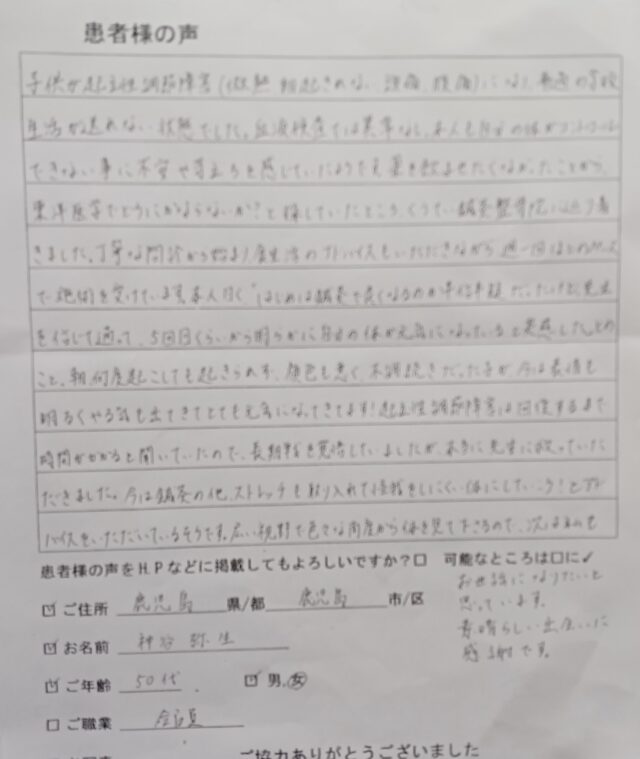 患者様の声
子供が起立性調節障害(微熱 朝起きれない 頭痛、腹痛)になり、普通の学校
生活が送れない状態でした。血液検査では異常なし、本人も自分の体がコントロール
できない事に不安や苛立ちを感じていたようで又薬を飲ませたくなかったことから、
東洋医学でどうにかならないか?と探していたところ、くうてい鍼灸整骨院に辿り着
きました。丁寧な問診から始まり食生活のアドバイスもいただきながら 週一回ほどのペース
で施術を受けています。本人曰く"はじめは鍼灸で良くなるのか半信半疑だったけど、先生
を信じて通って、5回目くらいから明らかに自分の体が元気になっていると実感した。との
こと、朝何度起こしても起きられず、顔色も悪く、不調続きだった子が、今は表情も
明るくやる気も出てきてとても元気になってきてます!起立性調節障害は回復するまで
時間がかかると聞いていたので、長期戦を覚悟していましたが、本当に先生に救っていた
だきました。今は鍼灸の他、ストレッチも取り入れて怪我をしにくい体にしていこう!とアド
バイスをいただいているそうです。広い視野で色々な角度から体を見て下さるので、次は私も
お世話になりたいと
思っています。
素晴らしい出会いに
感謝です。
患者様の声をH.Pなどに掲載してもよろしいですか?□ 可能なところは□に✓
☑ご住所 鹿児島 県/都 鹿児島 市/区
☑お名前 神谷 弥生
☑ご年齢 50代. ☑男.女
□ご職業 会社員
ご協力ありがとうございました